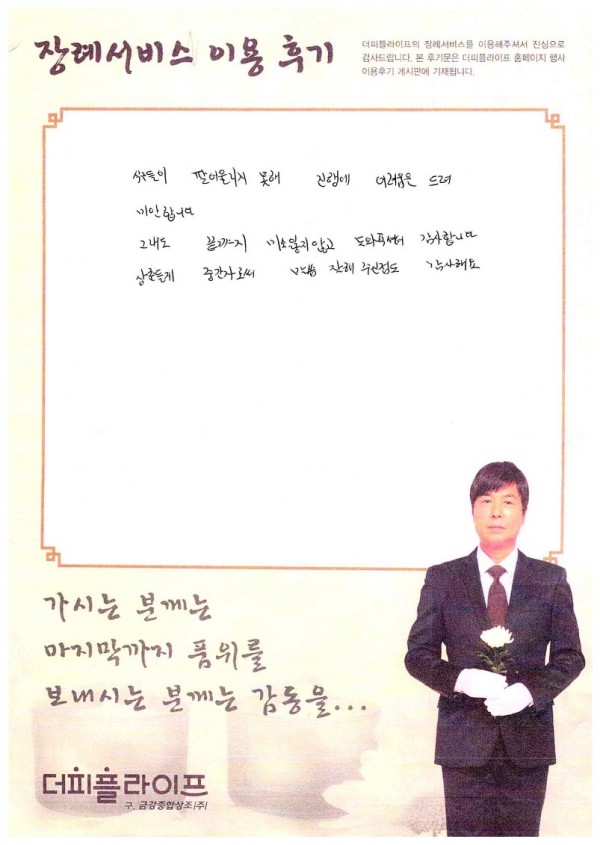 장례서비스 이용 후기
더피플라이프의 장례서비스를 이용해주셔서 진심으로
감사드립니다. 본 후기문은 더피플라이프 홈페이지 행사
이용후기 게시판에 기재됩니다.
식구들이 못해 진행에 어려움은 드려
미안합니다
그래도 끝까지 미소잃지않고 도와주셔서 감사합니다
중간자로써 잘해 주신점도 감사해요
가시는 분께는
마지막까지 품위를
보내시는 분께는 감동을...
더피플라이프
구. 금강종합상조(주)